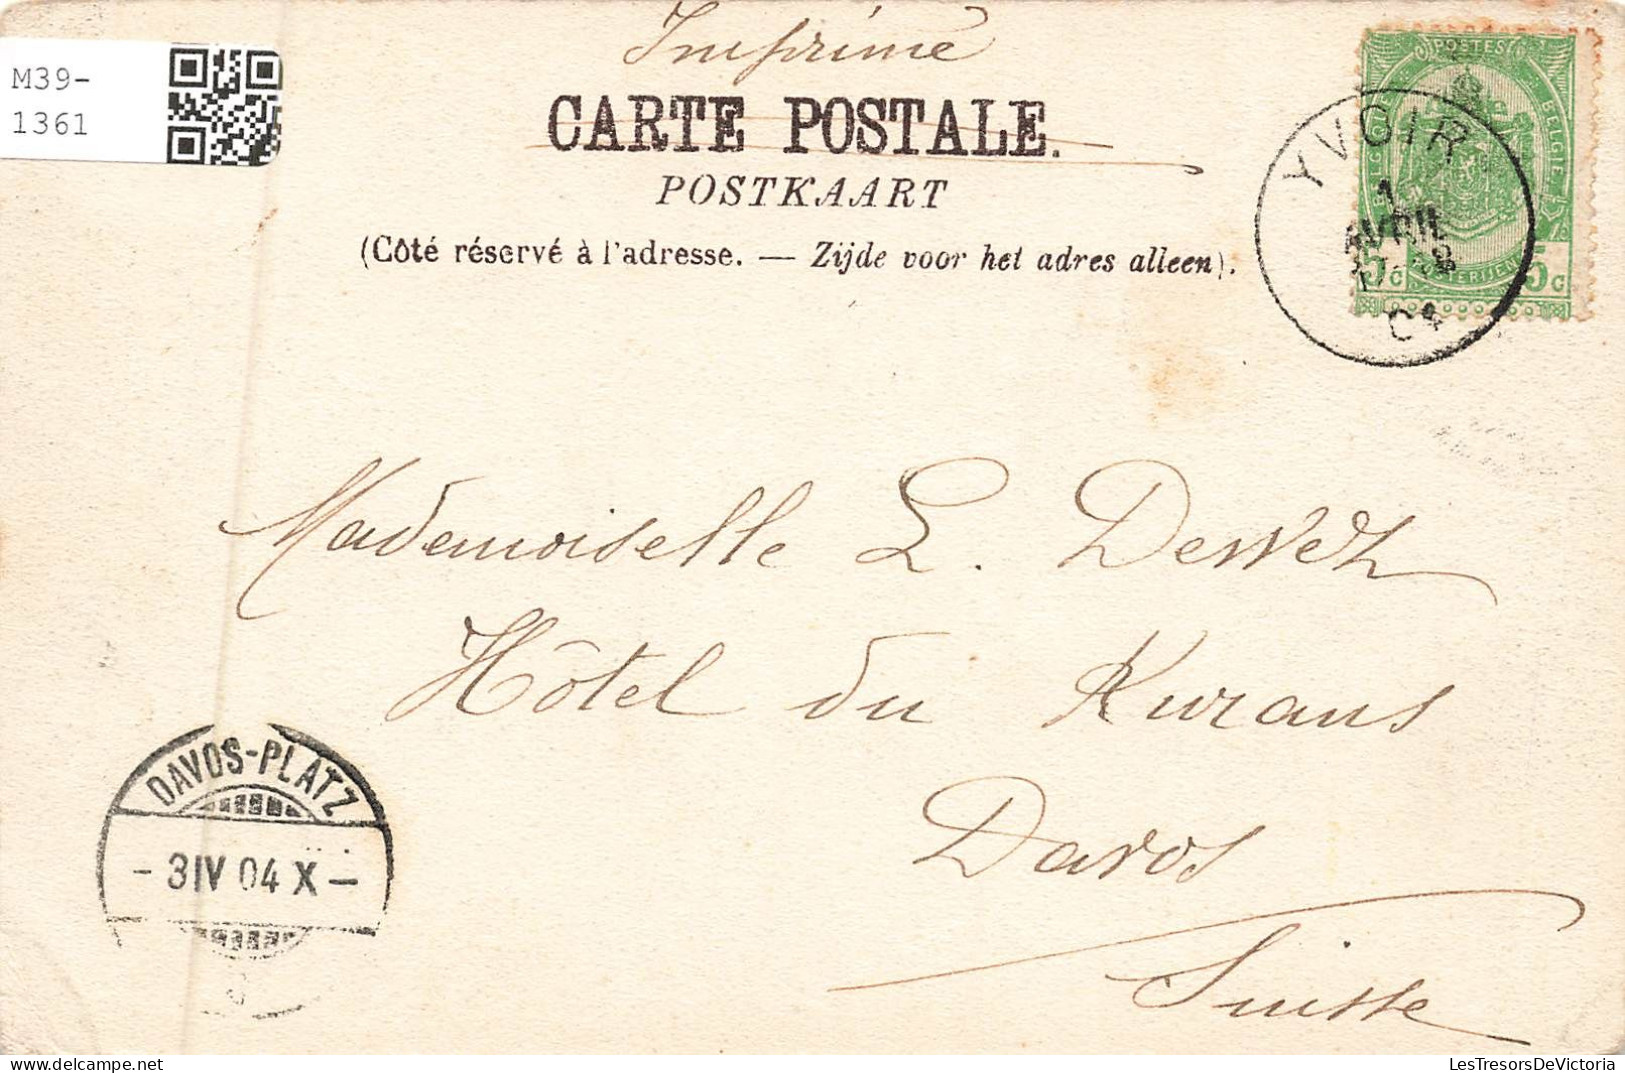 M39-
1361
Imprimé
CARTE POSTALE.
POSTKAART
(Côté réservé à l'adresse. — Zijde voor het adres alleen).
POSTES
BELGIE
5c
5c
YVOIR
1
AVRIL
04
Mademoiselle L. Dewez
Hôtel du Kurans
Davos
Suisse
DAVOS-PLATZ
- 3 IV 04 X -
LesTresorsDeVictoria